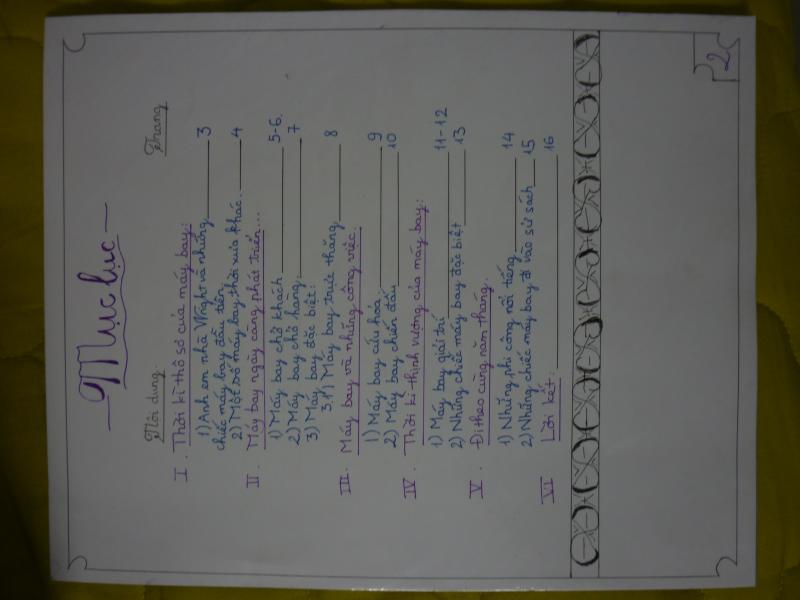 Mục lục
Nội dung. Trang
I. Thời kì thô sơ của máy bay:
1) Anh em nhà Wright và những
chiếc máy bay đầu tiên. 3
2) Một số máy bay thời xưa khác. 4
II. Máy bay ngày càng phát triển...
1) Máy bay chở khách 5-6.
2) Máy bay chở hàng. 7
3) Máy bay đặc biệt:
3.1) Máy bay trực thăng. 8
III. Máy bay và những công việc.
1) Máy bay cứu hoả 9
2) Máy bay chiến đấu 10
IV. Thời kì thịnh vượng của máy bay:
1) Máy bay giải trí 11-12
2) Những chiếc máy bay đặc biệt 13
V. Đi theo cùng năm tháng.
1) Những phi công nổi tiếng 14
2) Những chiếc máy bay đi vào sử sách 15
VI Lời kết. 16
2